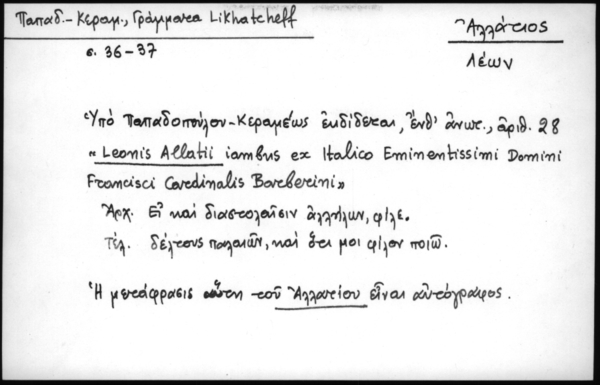 Παπαδ.-Κεραμ., Γράμματα Likhatcheff
σ. 36-37
Ἀλλάτιος
Λέων
Ὑπό Παπαδοπούλου-Κεραμέως ἐκδίδεται, ἔνθ' ἀνωτ., ἀριθ. 28
«Leonis Allatii iambus ex Italico Eminentissimi Domini
Francisci Cardinalis Barberini»
Ἀρχ. Εἰ καὶ διαστολαῖσιν ἀλλήλων, φίλε.
Τέλ. δέλτους παλαιῶν, καὶ ὅτι μοι φίλον ποιῶ.
Ἡ μετάφρασις αὕτη τοῦ Ἀλλατίου εἶναι αὐτόγραφος.